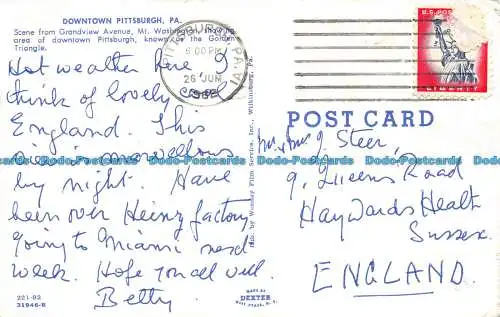 DOWNTOWN PITTSBURGH, PA.
Scene from Grandview Avenue, Mt. Washington, showing
area of downtown Pittsburgh, known as the Golden
Triangle.
Hot weather here I
think of lovely cool
England. This
view is marvellous
by night. Have
been over Heinz factory
going to Miami next
week. Hope you all well.
Betty
221-92
31946-B
Pub. by Wonday Film Service, Inc., Wilkinsburg, Pa.
MADE BY
DEXTER
WEST NYACK, N. Y.
PITTSBURGH, PA.
6:00 PM
26 JUN
U.S. POSTAGE
LIBERTY
POST CARD
Mr & Mrs J. Steer,
9, Queens Road
Haywards Heath
Sussex.
ENGLAND.
Dodo-Postcards Dodo-Postcards Dodo-Postcards Dodo-Postcards